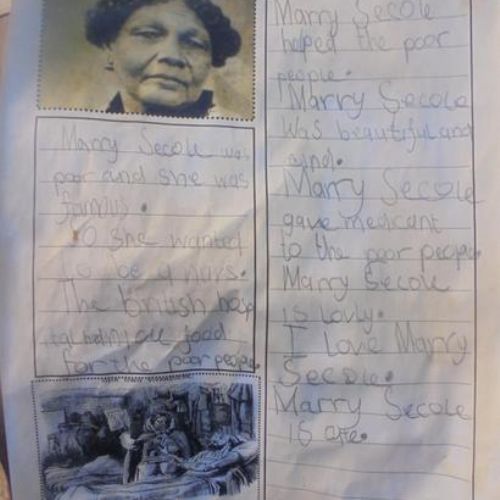 Marry Secole was
poor and she was
famus.
so she wanted
to be a nurs.
The british hosp
tal food
for the poor people.
Marry Secole
helped the poor
people.
Marry Secole
was beautiful and
cind.
Marry Secole
gave medicant
to the poor people.
Marry Secole
is lovly.
I Love Marry
Secole.
Marry Secole
is